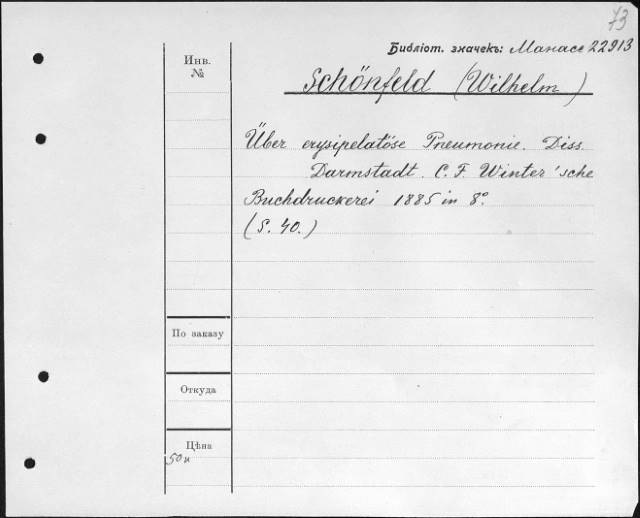 73
Библіот. значекъ: Манасс 22913
Инв.
№
Schönfeld (Wilhelm)
Über erysipelatöse Pneumonie. Diss.
Darmstadt. C. F. Winter'sche
Buchdruckerei 1885 in 8º.
(S. 40.)
По заказу
Откуда
Цѣна
50 к